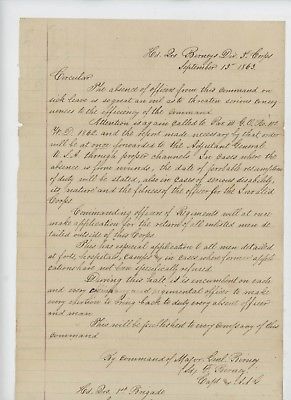 Hd. Qrs Birneys Div. 3d Corps
September 13th 1863.
Circular
The absence of officers from this command on
sick leave is so great an evil as to threaten serious conseq-
uences to the efficiency of the command.
Attention is again called to Par. G.O. No.
W.D. 1862. and the report made necessary by that order
will be at once forwarded to the Adjutant General
U.S.A. through proper channels. In cases where the
absence is from wounds, the date of probable resumption
of duty will be stated, also in cases of serious disability,
its nature and the fitness of the officer for the Invalid
Corps
Commanding officers of Regiments will at once
make application for the return of all enlisted men de-
tailed outside of this Corps.
This has especial application to all men detailed
at forts, hospitals, camps & in cases where former appli-
cations have not been specifically refused.
During this halt it is incumbent on each
and every company and regimental officer to make
every exertion to bring back to duty every absent officer
and man.
This will be published to every company of this
command.
By command of Major Genl. Birney
Birney
Capt & A.A.G.
Hd. Qrs. 1st Brigade